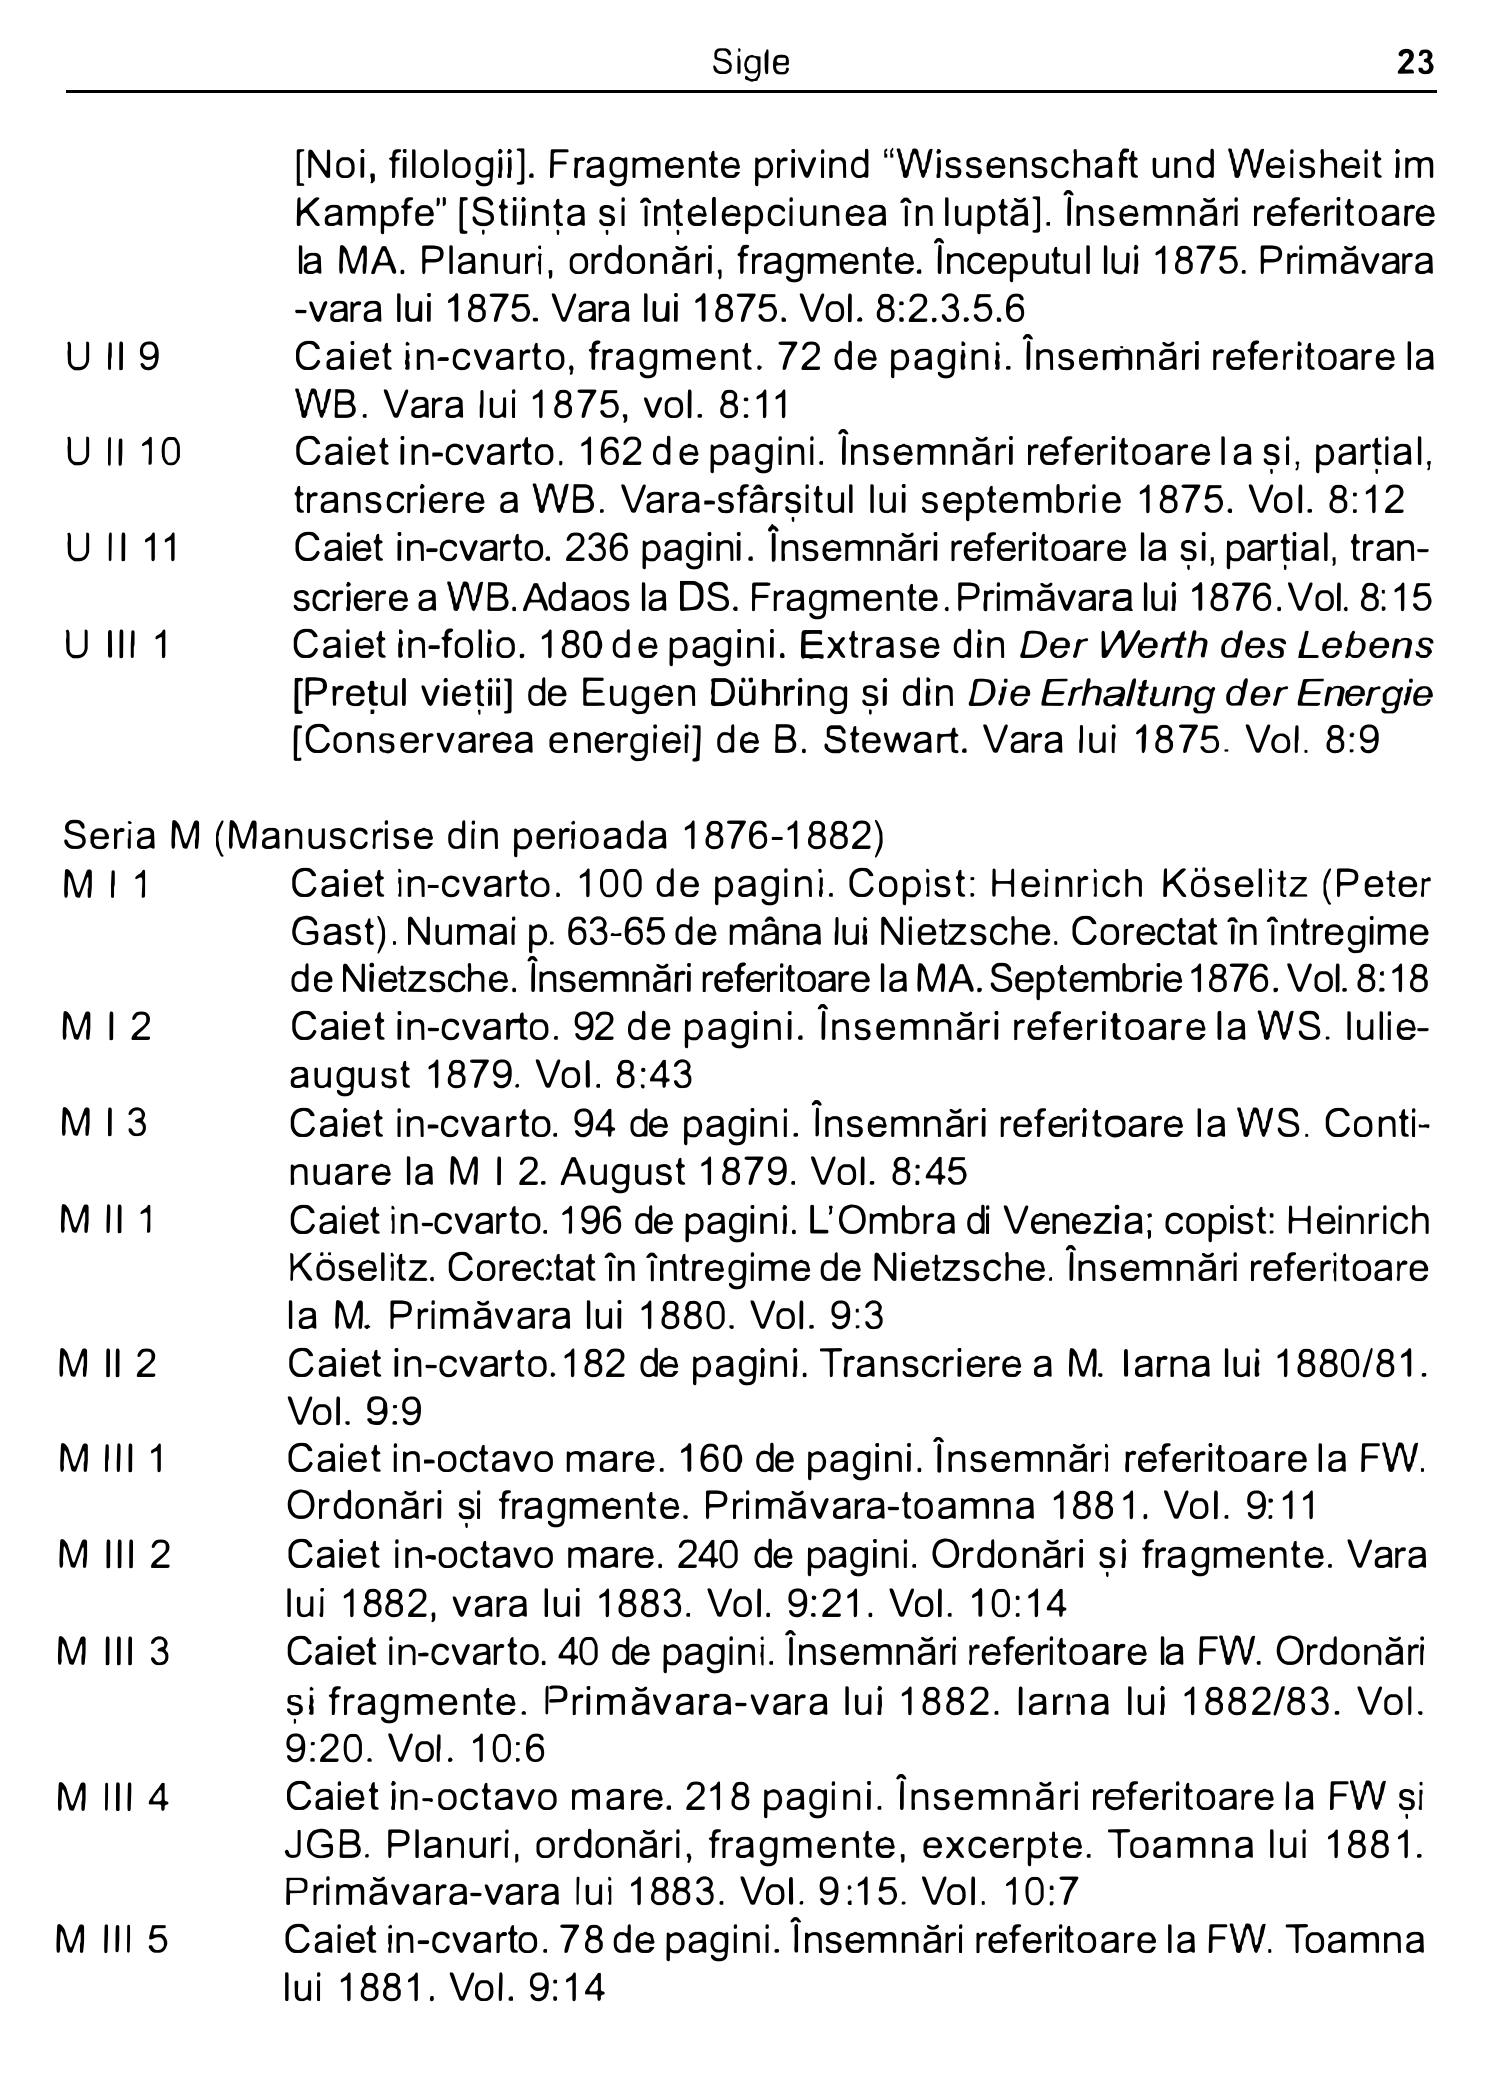 Sigle 23
[Noi, filologii]. Fragmente privind “Wissenschaft und Weisheit im
Kampfe" [Știința și înțelepciunea în luptă]. Însemnări referitoare
la MA. Planuri, ordonări, fragmente. Începutul lui 1875. Primăvara
-vara lui 1875. Vara lui 1875. Vol. 8:2.3.5.6
U II 9 Caiet in-cvarto, fragment. 72 de pagini. Însemnări referitoare la
WB. Vara lui 1875, vol. 8:11
U II 10 Caiet in-cvarto. 162 de pagini. Însemnări referitoare la și, parțial,
transcriere a WB. Vara-sfârșitul lui septembrie 1875. Vol. 8:12
U II 11 Caiet in-cvarto. 236 pagini. Însemnări referitoare la și, parțial, tran-
scriere a WB. Adaos la DS. Fragmente. Primăvara lui 1876. Vol. 8:15
U III 1 Caiet in-folio. 180 de pagini. Extrase din Der Werth des Lebens
[Prețul vieții] de Eugen Dühring și din Die Erhaltung der Energie
[Conservarea energiei] de B. Stewart. Vara lui 1875. Vol. 8:9
Seria M (Manuscrise din perioada 1876-1882)
M I 1 Caiet in-cvarto. 100 de pagini. Copist: Heinrich Köselitz (Peter
Gast). Numai p. 63-65 de mâna lui Nietzsche. Corectat în întregime
de Nietzsche. Însemnări referitoare la MA. Septembrie 1876. Vol. 8:18
M I 2 Caiet in-cvarto. 92 de pagini. Însemnări referitoare la WS. Iulie-
august 1879. Vol. 8:43
M I 3 Caiet in-cvarto. 94 de pagini. Însemnări referitoare la WS. Conti-
nuare la M I 2. August 1879. Vol. 8:45
M II 1 Caiet in-cvarto. 196 de pagini. L’Ombra di Venezia; copist: Heinrich
Köselitz. Corectat în întregime de Nietzsche. Însemnări referitoare
la M. Primăvara lui 1880. Vol. 9:3
M II 2 Caiet in-cvarto. 182 de pagini. Transcriere a M. Iarna lui 1880/81.
Vol. 9:9
M III 1 Caiet in-octavo mare. 160 de pagini. Însemnări referitoare la FW.
Ordonări și fragmente. Primăvara-toamna 1881. Vol. 9:11
M III 2 Caiet in-octavo mare. 240 de pagini. Ordonări și fragmente. Vara
lui 1882, vara lui 1883. Vol. 9:21. Vol. 10:14
M III 3 Caiet in-cvarto. 40 de pagini. Însemnări referitoare la FW. Ordonări
și fragmente. Primăvara-vara lui 1882. Iarna lui 1882/83. Vol.
9:20. Vol. 10:6
M III 4 Caiet in-octavo mare. 218 pagini. Însemnări referitoare la FW și
JGB. Planuri, ordonări, fragmente, excerpte. Toamna lui 1881.
Primăvara-vara lui 1883. Vol. 9:15. Vol. 10:7
M III 5 Caiet in-cvarto. 78 de pagini. Însemnări referitoare la FW. Toamna
lui 1881. Vol. 9:14